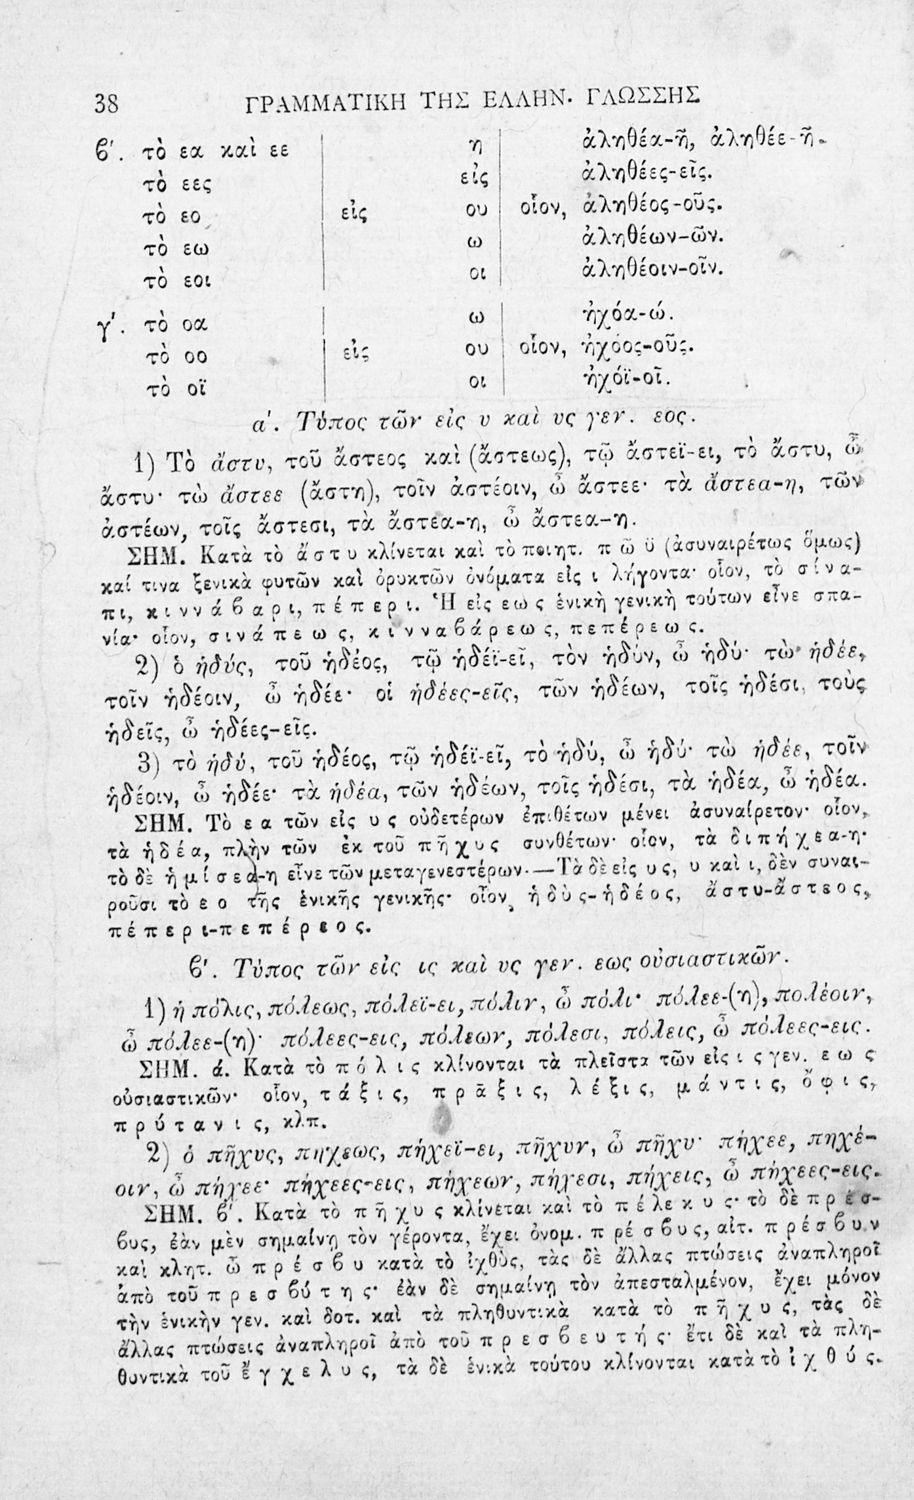 38 ΓΡΑΜΜΑΤΙΚΗ ΤΗΣ ΕΛΛΗΝ. ΓΛΩΣΣΗΣ
ϐ΄. τὸ εα καὶ εε η ἀληθέα-ῆ, ἀληθέε-ῆ.
τὸ εες εἰς ἀληθέες-εῖς.
τὸ εο εἰς ου οἷον, ἀληθέος-οῦς.
τὸ εω ω ἀληθέων-ῶν.
τὸ εοι οι ἀληθέοιν-οῖν.
γ΄. τὸ οα ω ἠχόα-ώ.
τὸ οο εἰς ου οἷον, ἠχόος-οῦς.
τὸ οϊ οι ἠχόϊ-οῖ.
α΄. Τύπος τῶν εἰς υ καὶ υς γεν. εος.
1) Τὸ ἄστυ, τοῦ ἄστεος καὶ (ἄστεως), τῷ ἄστεϊ-ει, τὸ ἄστυ, ὦ
ἄστυ· τὼ ἄστεε (ἄστη), τοῖν ἀστέοιν, ὦ ἄστεε· τὰ ἄστεα-η, τῶν
ἀστέων, τοῖς ἄστεσι, τὰ ἄστεα-η, ὦ ἄστεα-η.
ΣΗΜ. Κατὰ τὸ ἄστυ κλίνεται καὶ τὸ ποιητ. πῶϋ (ἀσυναιρέτως ὅμως)
καί τινα ξενικὰ φυτῶν καὶ ὀρυκτῶν ὀνόματα εἰς ι λήγοντα· οἷον, τὸ σίνα-
πι, κιννάϐαρι, πέπερι. Ἡ εἰς εως ἑνικὴ γενικὴ τούτων εἶνε σπα-
νία· οἷον, σινάπεως, κινναϐάρεως, πεπέρεως.
2) ὁ ἡδύς, τοῦ ἡδέος, τῷ ἡδέϊ-εῖ, τὸν ἡδύν, ὦ ἡδύ· τὼ ἡδέε,
τοῖν ἡδέοιν, ὦ ἡδέε· οἱ ἡδέες-εῖς, τῶν ἡδέων, τοῖς ἡδέσι, τοὺς
ἡδεῖς, ὦ ἡδέες-εῖς.
3) τὸ ἡδύ, τοῦ ἡδέος, τῷ ἡδέϊ-εῖ, τὸ ἡδύ, ὦ ἡδύ· τὼ ἡδέε, τοῖν
ἡδέοιν, ὦ ἡδέε· τὰ ἡδέα, τῶν ἡδέων, τοῖς ἡδέσι, τὰ ἡδέα, ὦ ἡδέα.
ΣΗΜ. Τὸ εα τῶν εἰς υς οὐδετέρων ἐπιθέτων μένει ἀσυναίρετον· οἷον,
τὰ ἡδέα, πλὴν τῶν ἐκ τοῦ πῆχυς συνθέτων· οἷον, τὰ διπήχεα-η·
τὸ δὲ ἡμίσεα-η εἶνε τῶν μεταγενεστέρων.—Τὰ δὲ εἰς υς, υ καὶ ι, δὲν συναι-
ροῦσι τὸ εο τῆς ἑνικῆς γενικῆς· οἷον, ἡδὺς-ἡδέος, ἄστυ-ἄστεος,
πέπερι-πεπέρεος.
ϐ΄. Τύπος τῶν εἰς ις καὶ υς γεν. εως οὐσιαστικῶν.
1) ἡ πόλις, πόλεως, πόλεϊ-ει, πόλιν, ὦ πόλι· πόλεε-(η), πολέοιν,
ὦ πόλεε-(η)· πόλεες-εις, πόλεων, πόλεσι, πόλεις, ὦ πόλεες-εις.
ΣΗΜ. ά. Κατὰ τὸ πόλις κλίνονται τὰ πλεῖστα τῶν εἰς ις γεν. εως
οὐσιαστικῶν· οἷον, τάξις, πρᾶξις, λέξις, μάντις, ὄφις,
πρύτανις, κλπ.
2) ὁ πῆχυς, πήχεως, πήχεϊ-ει, πῆχυν, ὦ πῆχυ· πήχεε, πηχέ-
οιν, ὦ πήχεε· πήχεες-εις, πήχεων, πήχεσι, πήχεις, ὦ πήχεες-εις.
ΣΗΜ. ϐ΄. Κατὰ τὸ πῆχυς κλίνεται καὶ τὸ πέλεκυς· τὸ δὲ πρέσ-
ϐυς, ἐὰν μὲν σημαίνῃ τὸν γέροντα, ἔχει ὀνομ. πρέσϐυς, αἰτ. πρέσϐυν
καὶ κλητ. ὦ πρέσϐυ κατὰ τὸ ἰχθὺς, τὰς δὲ ἄλλας πτώσεις ἀναπληροῖ
ἀπὸ τοῦ πρεσϐύτης· ἐὰν δὲ σημαίνῃ τὸν ἀπεσταλμένον, ἔχει μόνον
τὴν ἑνικὴν γεν. καὶ δοτ. καὶ τὰ πληθυντικὰ κατὰ τὸ πῆχυς, τὰς δὲ
ἄλλας πτώσεις ἀναπληροῖ ἀπὸ τοῦ πρεσϐευτής· ἔτι δὲ καὶ τὰ πλη-
θυντικὰ τοῦ ἔγχελυς, τὰ δὲ ἑνικὰ τούτου κλίνονται κατὰ τὸ ἰχθύς.